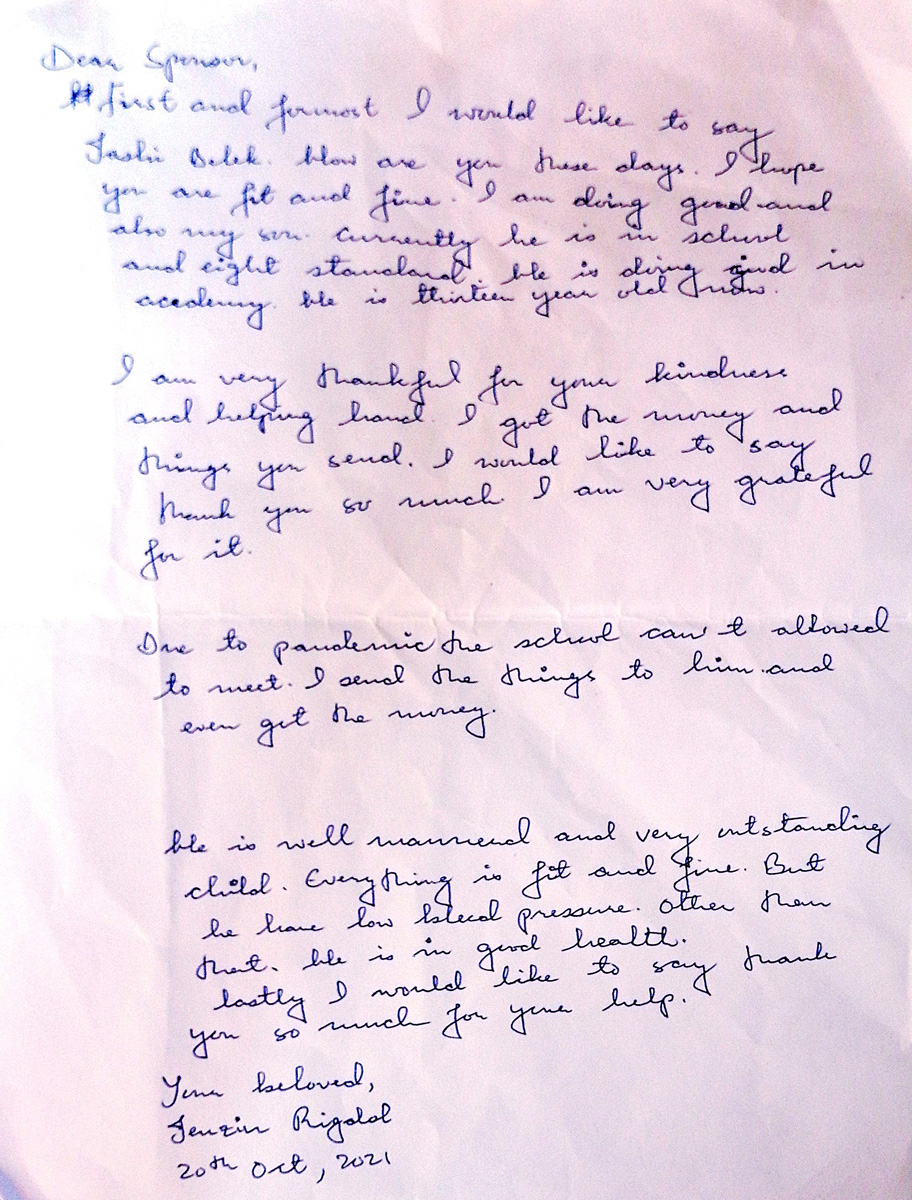 Dear Sponsor,
first and formost I would like to say
Tashi Delek. How are you these days. I hope
you are fit and fine. I am doing good and
also my son. Currently he is in school
and eight standard. He is doing good in
academy. He is thirteen year old now.
I am very thankful for your kindness
and helping hand. I got the money and
things you send. I would like to say
thank you so much. I am very grateful
for it.
Due to pandemic the school can't allowed
to meet. I send the things to him and
even got the money.
He is well mannered and very outstanding
child. Everything is fit and fine. But
he have low blood pressure. Other than
that. He is in good health.
lastly I would like to say thank
you so much for your help.
Your beloved,
Tenzin Rigdol
20th Oct, 2021